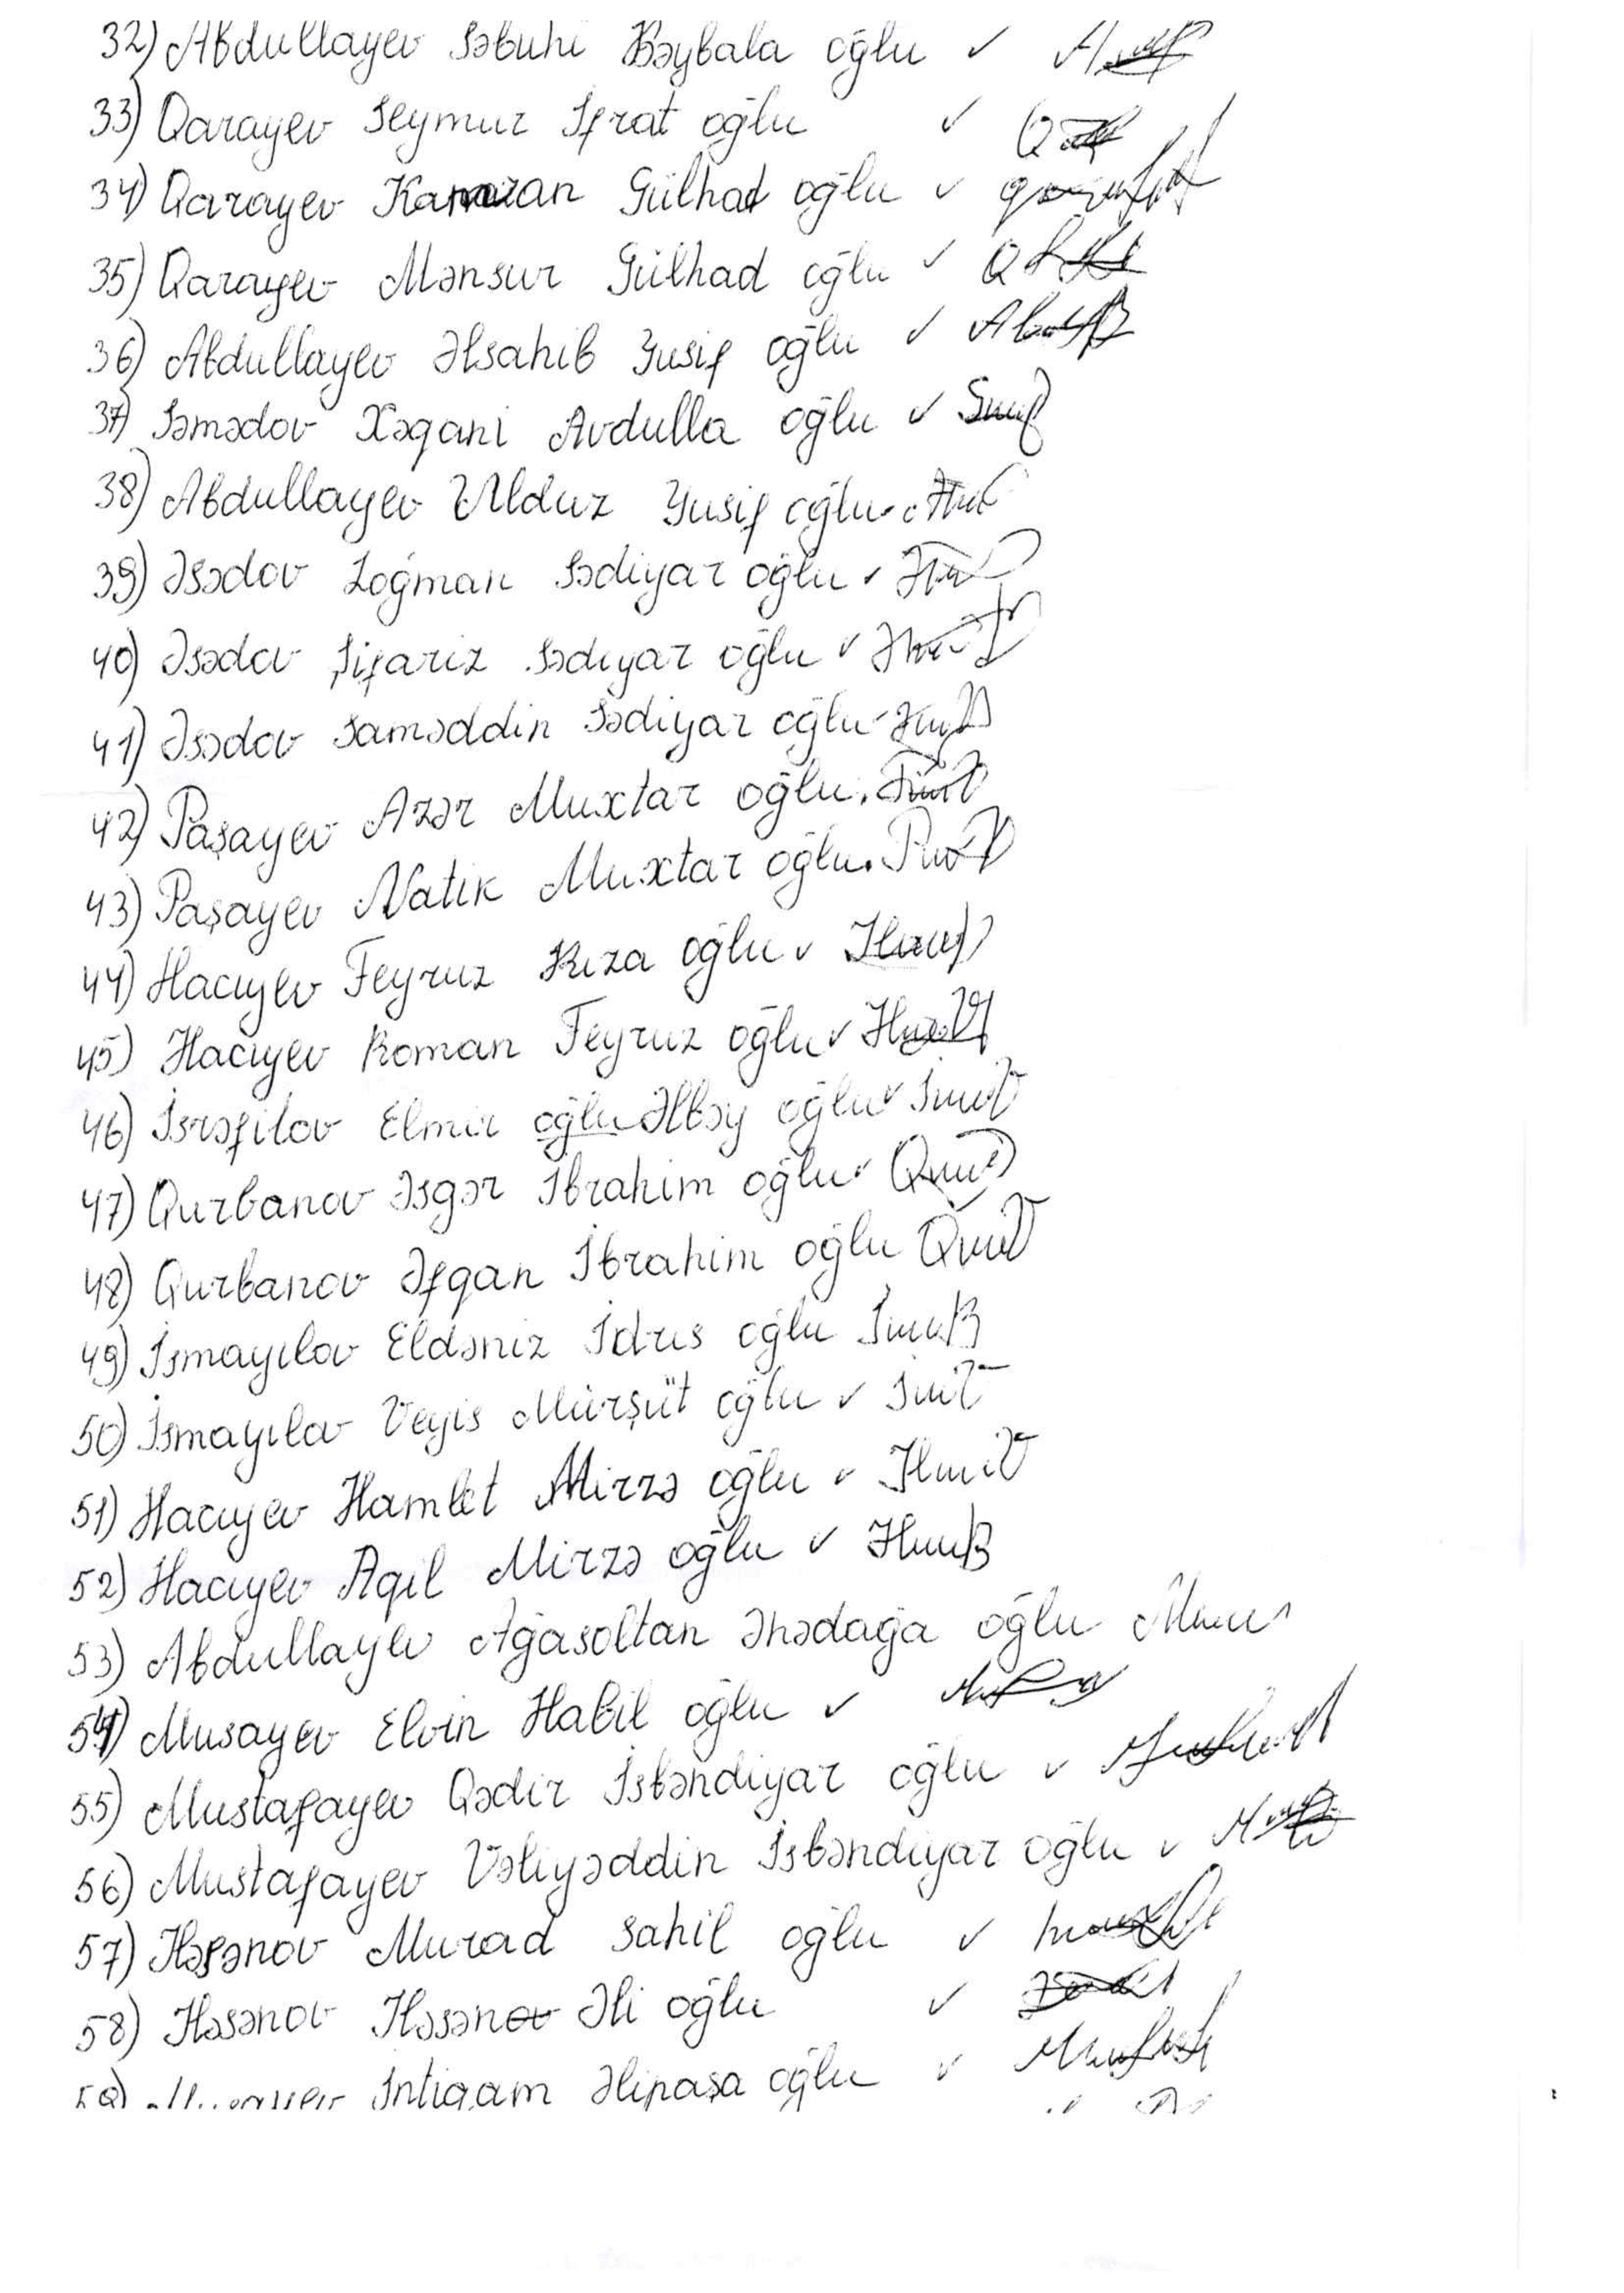 32) Abdullayev Səbuhi Bəybala oğlu ✓
33) Qarayev Seymur İfrat oğlu ✓
34) Qarayev Kamran Gülhad oğlu ✓
35) Qarayev Mənsur Gülhad oğlu ✓
36) Abdullayev Əlsahib Yusif oğlu ✓
37) Səmədov Xəqani Avdulla oğlu ✓
38) Abdullayev Ulduz Yusif oğlu
39) Əsədov Loğman Sədiyar oğlu ✓
40) Əsədov Şifariz Sədiyar oğlu ✓
41) Əsədov Saməddin Sədiyar oğlu
42) Paşayev Azər Muxtar oğlu.
43) Paşayev Natik Muxtar oğlu.
44) Hacıyev Feyruz Rıza oğlu ✓
45) Hacıyev Roman Feyruz oğlu ✓
46) İsrəfilov Elmir oğlu Əlbəy oğlu ✓
47) Qurbanov Əsgər İbrahim oğlu ✓
48) Qurbanov Əfqan İbrahim oğlu
49) İsmayılov Eldəniz İdris oğlu
50) İsmayılov Veyis Mürşüt oğlu ✓
51) Hacıyev Hamlet Mirzə oğlu ✓
52) Hacıyev Aqil Mirzə oğlu ✓
53) Abdullayev Ağasoltan Əhədağa oğlu
54) Musayev Elvin Habil oğlu ✓
55) Mustafayev Qədir İsbəndiyar oğlu ✓
56) Mustafayev Vəliyəddin İsbəndiyar oğlu ✓
57) Həsənov Murad Sahil oğlu ✓
58) Həsənov Həsənov Əli oğlu ✓
59) İntiqam Əlipaşa oğlu ✓